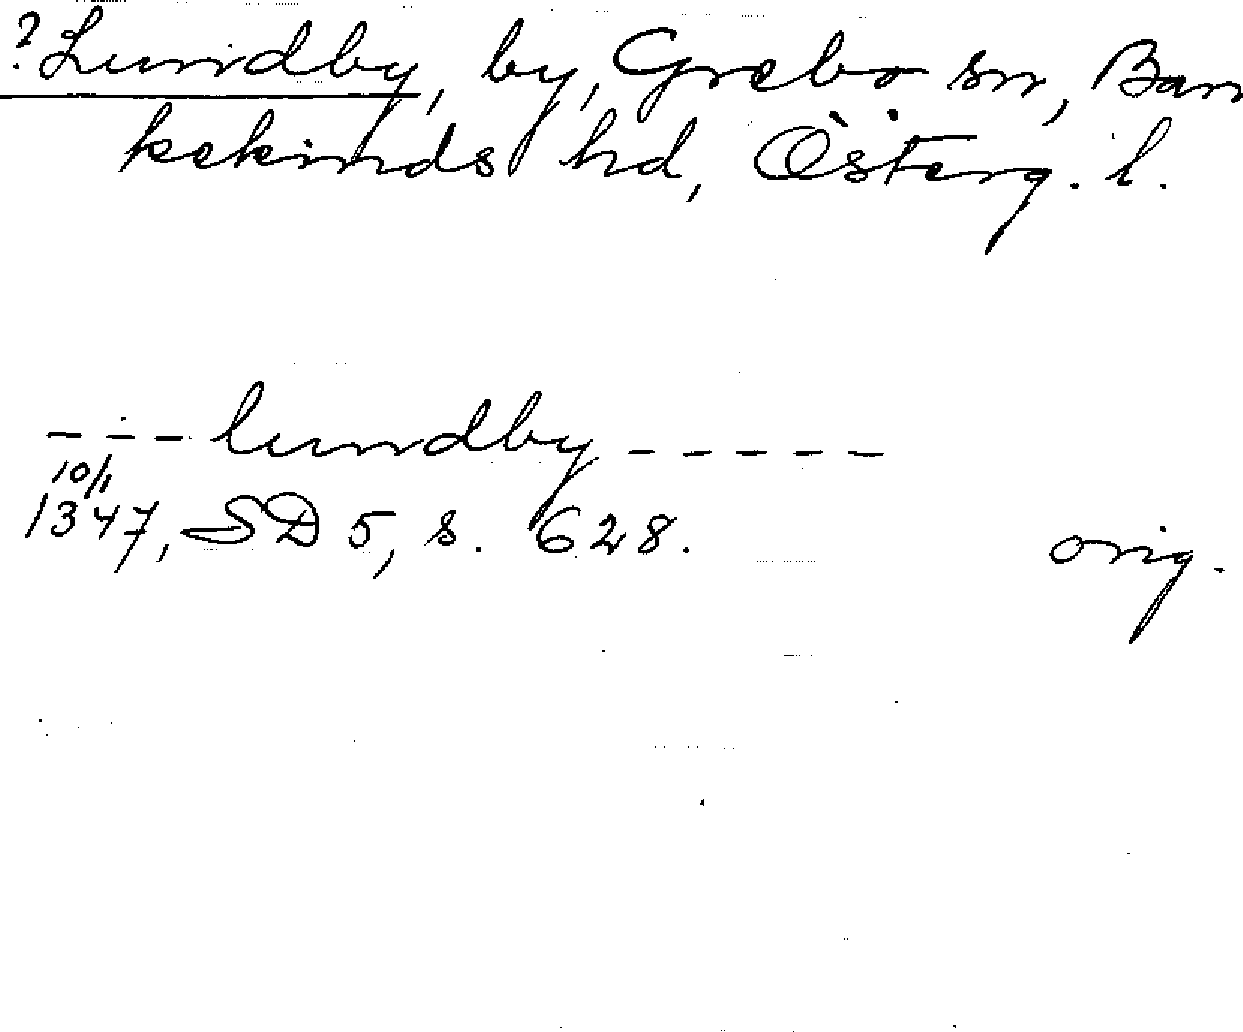 ? Lundby, by, Grebo sn, Ban
kekinds hd, Österg. l.
--- lundby -----
10/1
1347, SD 5, s. 628. orig.